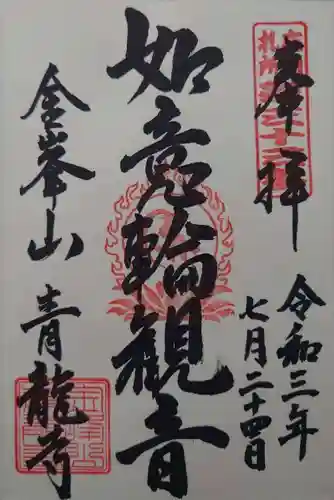 奉拝
令和三年
七月二十四日
如意輪観音
金峯山
青龍寺